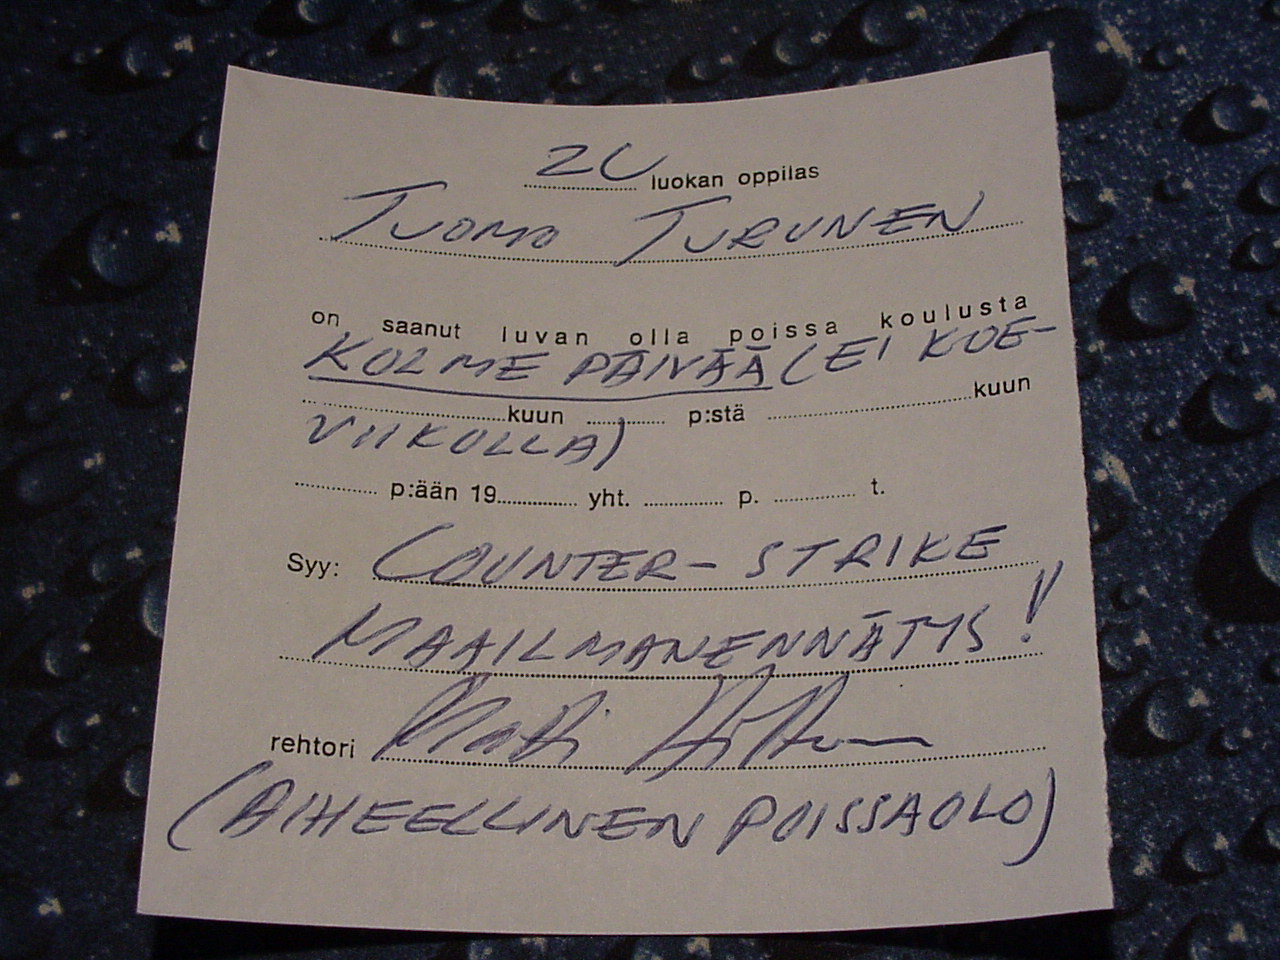 2C luokan oppilas
TUOMO TURUNEN
on saanut luvan olla poissa koulusta
KOLME PÄIVÄÄ (EI KOE-
kuun p:stä kuun
VIIKOLLA)
p:ään 19 yht. p. t.
Syy: COUNTER-STRIKE
MAAILMANENNÄTYS!
rehtori
(AIHEELLINEN POISSAOLO)